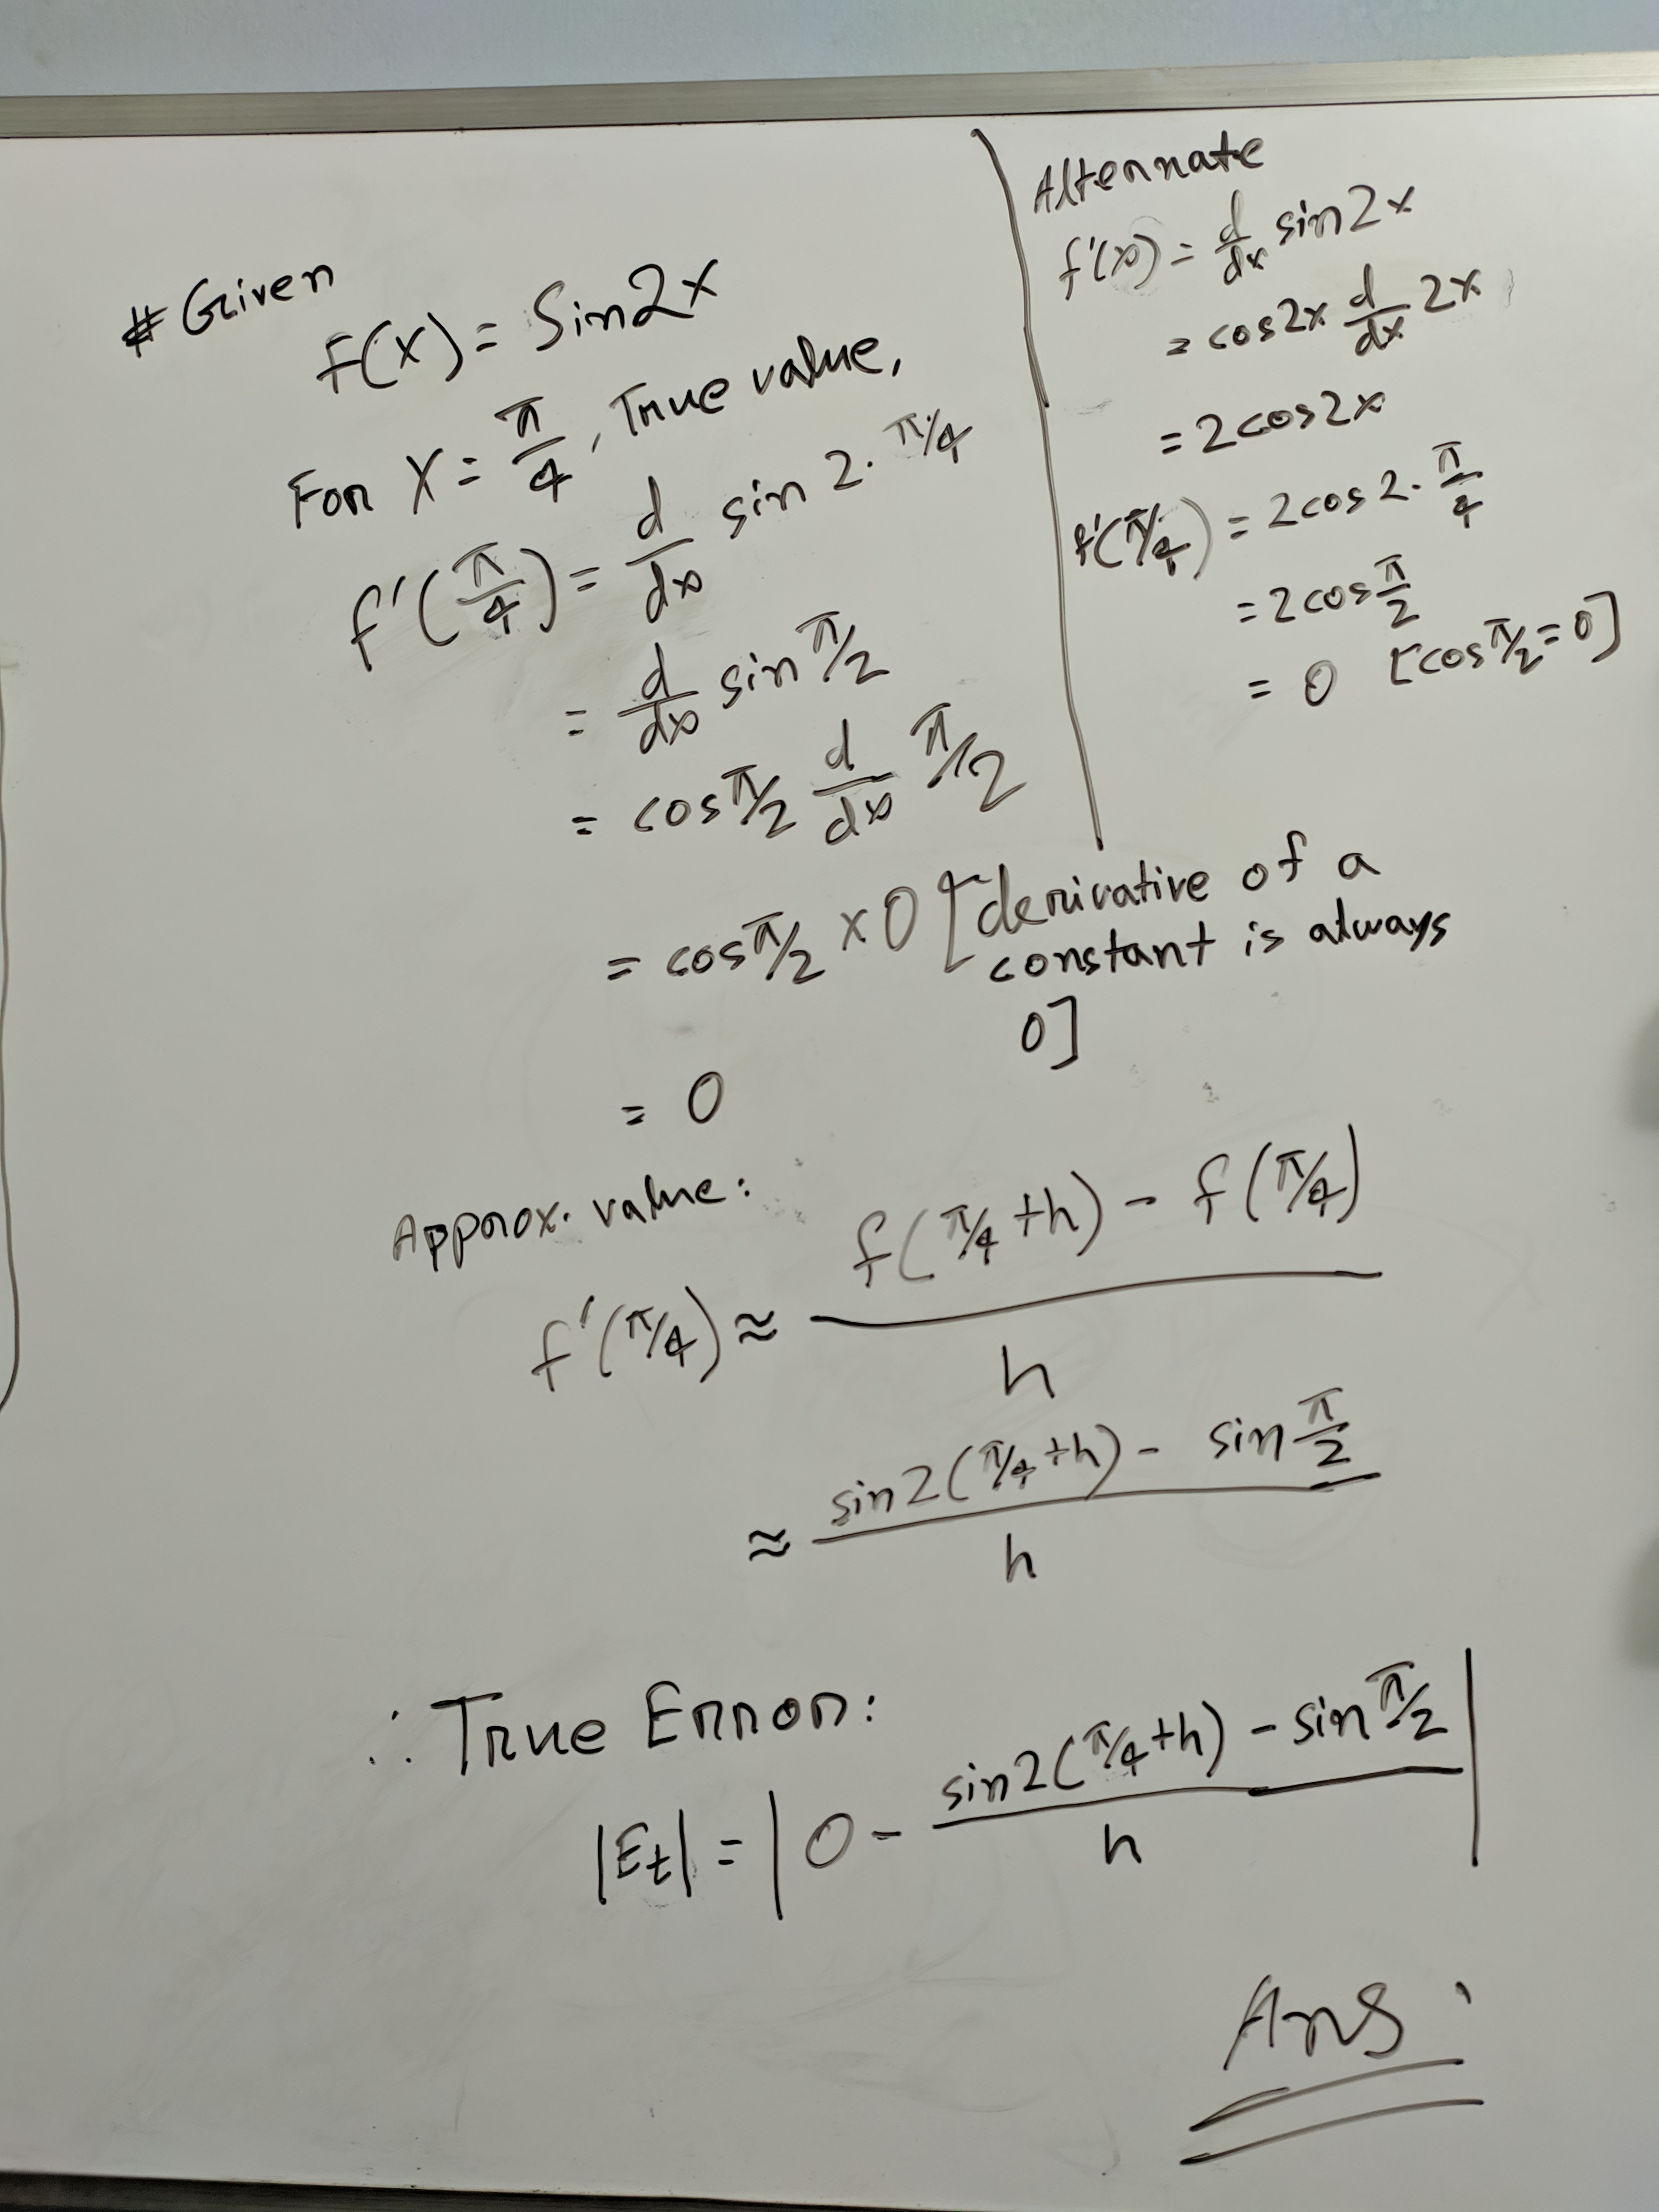 # Given
f(x) = Sin2x
For x = π/4, True value,
f'(π/4) = d/dx sin 2. π/4
= d/dx sin π/2
= cos π/2 d/dx π/2
= cos π/2 × 0 [derivative of a
constant is always
0]
= 0
Alternate
f'(x) = d/dx sin2x
= cos2x d/dx 2x
= 2cos2x
f'(π/4) = 2cos2. π/4
= 2cos π/2
= 0 [cos π/2 = 0]
Approx. value:
f'(π/4) ≈ f(π/4 +h) - f(π/4) / h
≈ sin2(π/4 +h) - sin π/2 / h
∴ True Error:
|Et| = | 0 - sin2(π/4 +h) - sin π/2 / h |
Ans: